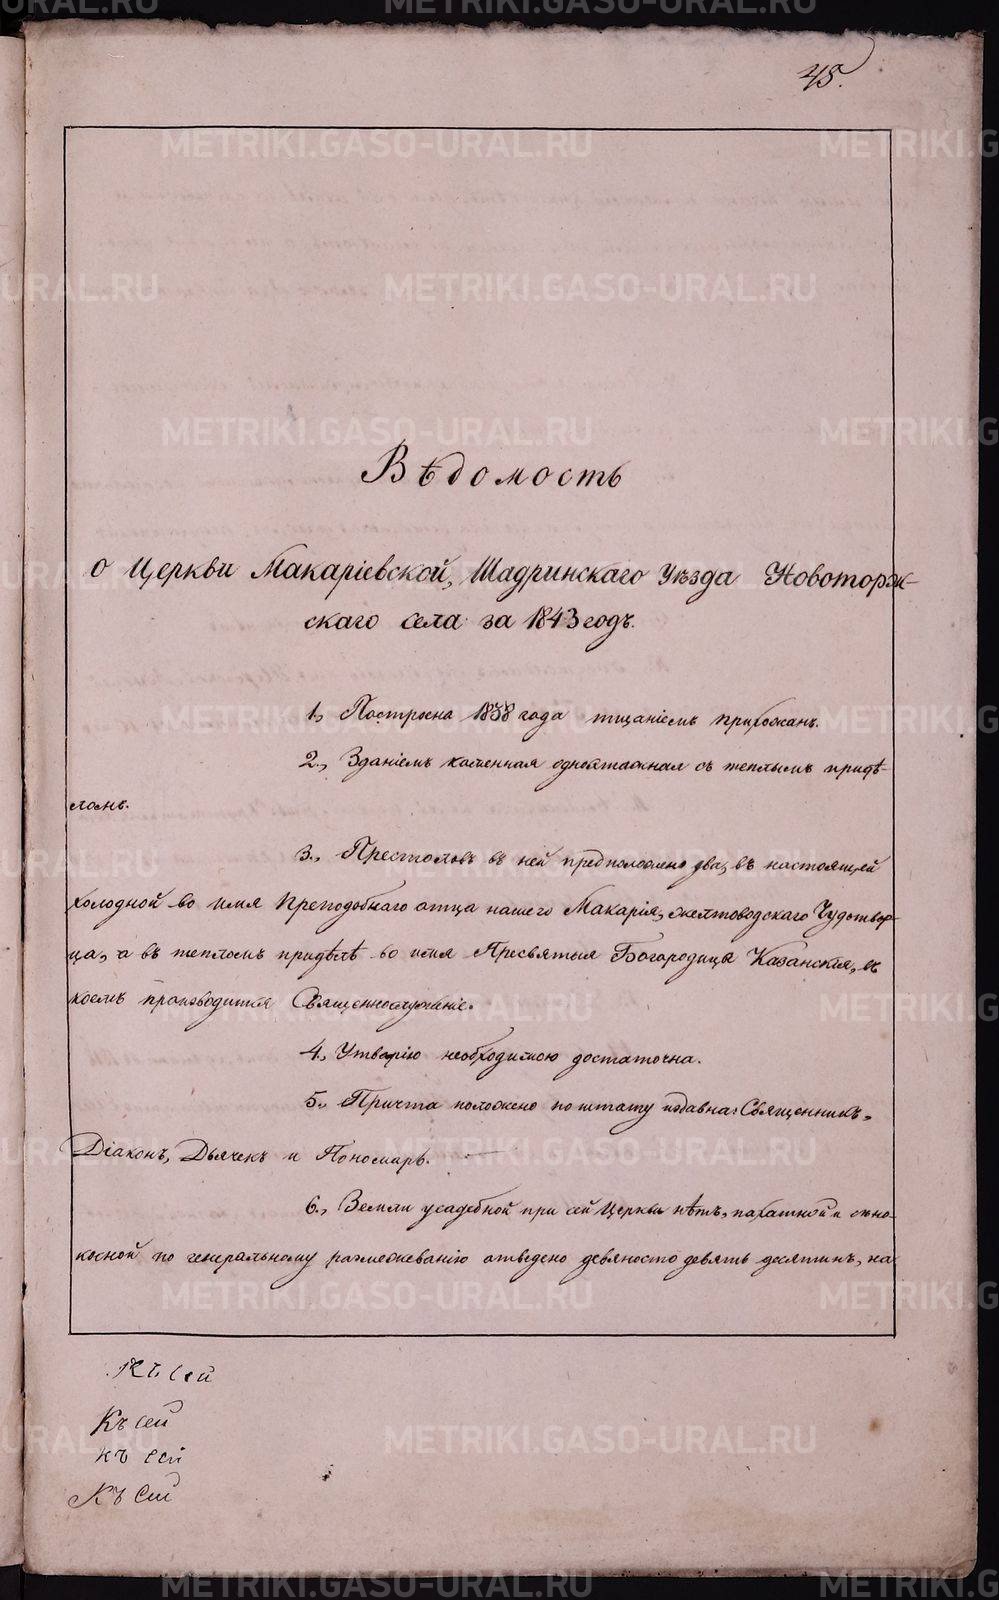 45.
Вѣдомость
о Церкви Макаріевской, Шадринскаго Уѣзда Новоторж-
скаго села за 1843 годъ.
1, Построена 1838 года тщаніемъ прихожанъ.
2, Зданіемъ каменная одноэтажная съ теплымъ придѣ-
ломъ.
3., Престоловъ въ ней предположено два, въ настоящей
холодной во имя Преподобнаго отца нашего Макарія, желтоводскаго Чудотвор-
ца, а въ тепломъ придѣлѣ во имя Пресвятыя Богородицы Казанскія, въ
коемъ производится Священнослуженіе.
4, Утварію необходимою достаточна.
5., Причта положено по штату издавна: Священникъ,
Діаконъ, Дьячекъ и Пономарь.
6., Земли усадебной при сей Церкви нѣтъ, пахатной и сѣно-
косной по генеральному размежеванію отведено девяносто девять десятинъ, на
Къ сей
Къ сей
къ сей
Къ Сей
METRIKI.GASO-URAL.RU